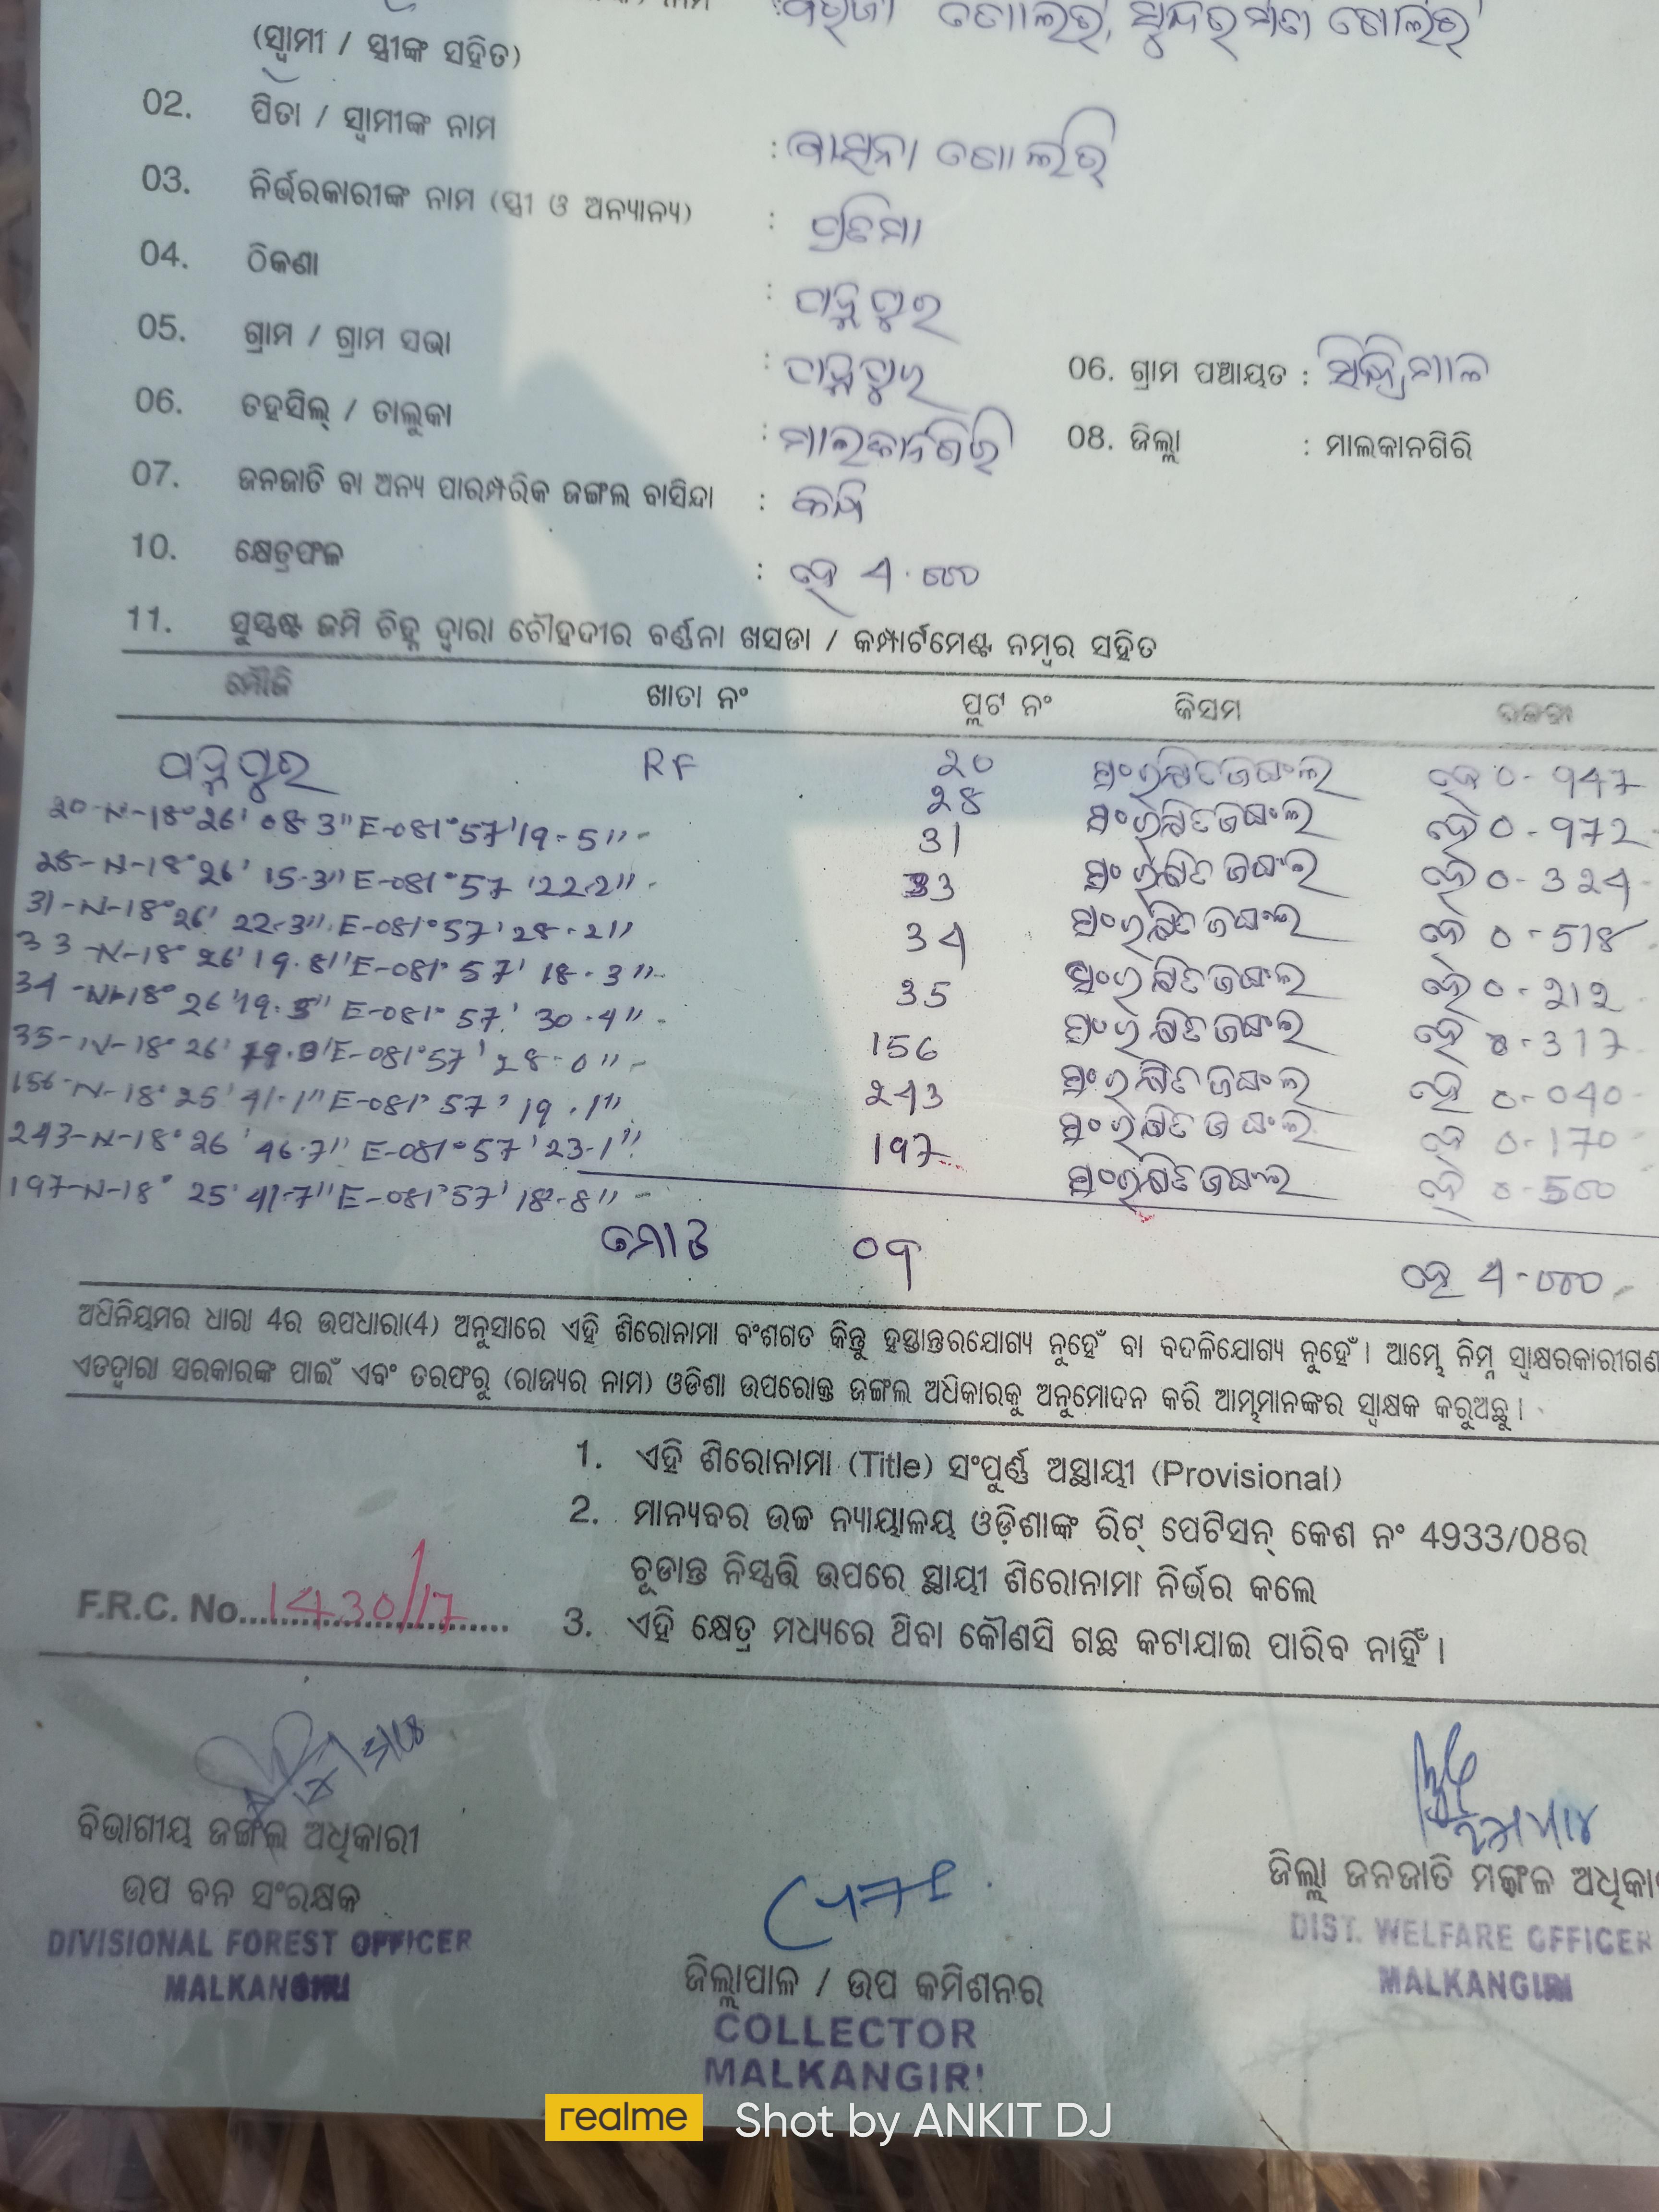 (ସ୍ୱାମୀ / ସ୍ତ୍ରୀଙ୍କ ସହିତ)
02. ପିତା / ସ୍ୱାମୀଙ୍କ ନାମ :
03. ନିର୍ଭରକାରୀଙ୍କ ନାମ (ସ୍ତ୍ରୀ ଓ ଅନ୍ୟାନ୍ୟ) : ପ୍ରତିମା
04. ଠିକଣା :
05. ଗ୍ରାମ / ଗ୍ରାମ ସଭା : 06. ଗ୍ରାମ ପଞ୍ଚାୟତ :
06. ତହସିଲ୍ / ତାଲୁକା : ମାଲକାନଗିରି 08. ଜିଲ୍ଲା : ମାଲକାନଗିରି
07. ଜନଜାତି ବା ଅନ୍ୟ ପାରମ୍ପରିକ ଜଙ୍ଗଲ ବାସିନ୍ଦା :
10. କ୍ଷେତ୍ରଫଳ : ହେ 4.000
11. ସୁସ୍ପଷ୍ଟ ଜମି ଚିହ୍ନ ଦ୍ୱାରା ଚୌହଦୀର ବର୍ଣ୍ଣନା ଖସଡା / କମ୍ପାର୍ଟମେଣ୍ଟ ନମ୍ବର ସହିତ
ମୌଜି ଖାତା ନଂ ପ୍ଲଟ ନଂ କିସମ
RF 20 ସଂରକ୍ଷିତ ଜଙ୍ଗଲ ହେ 0-947
20-N-18°26' 08.3" E-081°57'19-5" - 28 ସଂରକ୍ଷିତ ଜଙ୍ଗଲ ହେ 0-972
28-N-18°26' 15.3" E-081°57'22.2" - 31 ସଂରକ୍ଷିତ ଜଙ୍ଗଲ ହେ 0-324
31-N-18°26' 22-3" E-081°57'28.2" 33 ସଂରକ୍ଷିତ ଜଙ୍ଗଲ ହେ 0-518
33-N-18°26'19.8" E-081°57' 18.3" - 34 ସଂରକ୍ଷିତ ଜଙ୍ଗଲ ହେ 0-212
34-N-18°26'19. E-081°57' 30.4" - 35 ସଂରକ୍ଷିତ ଜଙ୍ଗଲ ହେ 0-317
35-N-18°26' E-081°57'28.0" - 156 ସଂରକ୍ଷିତ ଜଙ୍ଗଲ ହେ 0-040
156-N-18°25'41.1" E-081°57'19.1" 243 ସଂରକ୍ଷିତ ଜଙ୍ଗଲ ହେ 0-170
243-N-18°26'46.7" E-081°57'23-1" 197 ସଂରକ୍ଷିତ ଜଙ୍ଗଲ ହେ 0-500
197-N-18°25'41-7" E-081°57'18.8" -
ମୋଟ ୦୯ ହେ 4-000
ଅଧିନିୟମର ଧାରା 4ର ଉପଧାରା(4) ଅନୁସାରେ ଏହି ଶିରୋନାମା ବଂଶଗତ କିନ୍ତୁ ହସ୍ତାନ୍ତରଯୋଗ୍ୟ ନୁହେଁ ବା ବଦଳିଯୋଗ୍ୟ ନୁହେଁ । ଆମ୍ଭେ ନିମ୍ନ ସ୍ୱାକ୍ଷରକାରୀଗଣ
ଏତଦ୍ୱାରା ସରକାରଙ୍କ ପାଇଁ ଏବଂ ତରଫରୁ (ରାଜ୍ୟର ନାମ) ଓଡିଶା ଉପରୋକ୍ତ ଜଙ୍ଗଲ ଅଧିକାରକୁ ଅନୁମୋଦନ କରି ଆମ୍ଭମାନଙ୍କର ସ୍ୱାକ୍ଷକ କରୁଅଛୁ ।
1. ଏହି ଶିରୋନାମା (Title) ସଂପୁର୍ଣ୍ଣ ଅସ୍ଥାୟୀ (Provisional)
2. ମାନ୍ୟବର ଉଚ୍ଚ ନ୍ୟାୟାଳୟ ଓଡ଼ିଶାଙ୍କ ରିଟ୍ ପେଟିସନ୍ କେଶ ନଂ 4933/08ର
ଚୂଡାନ୍ତ ନିସ୍ପତ୍ତି ଉପରେ ସ୍ଥାୟୀ ଶିରୋନାମା ନିର୍ଭର କଲେ
F.R.C. No. 1430/17
3. ଏହି କ୍ଷେତ୍ର ମଧ୍ୟରେ ଥିବା କୌଣସି ଗଛ କଟାଯାଇ ପାରିବ ନାହିଁ ।
ବିଭାଗୀୟ ଜଙ୍ଗଲ ଅଧିକାରୀ
ଉପ ବନ ସଂରକ୍ଷକ
DIVISIONAL FOREST OFFICER
MALKANGIRI
ଜିଲ୍ଲାପାଳ / ଉପ କମିଶନର
COLLECTOR
MALKANGIRI
ଜିଲ୍ଲା ଜନଜାତି ମଙ୍ଗଳ ଅଧିକା
DIST. WELFARE OFFICER
MALKANGIRI
realme Shot by ANKIT DJ